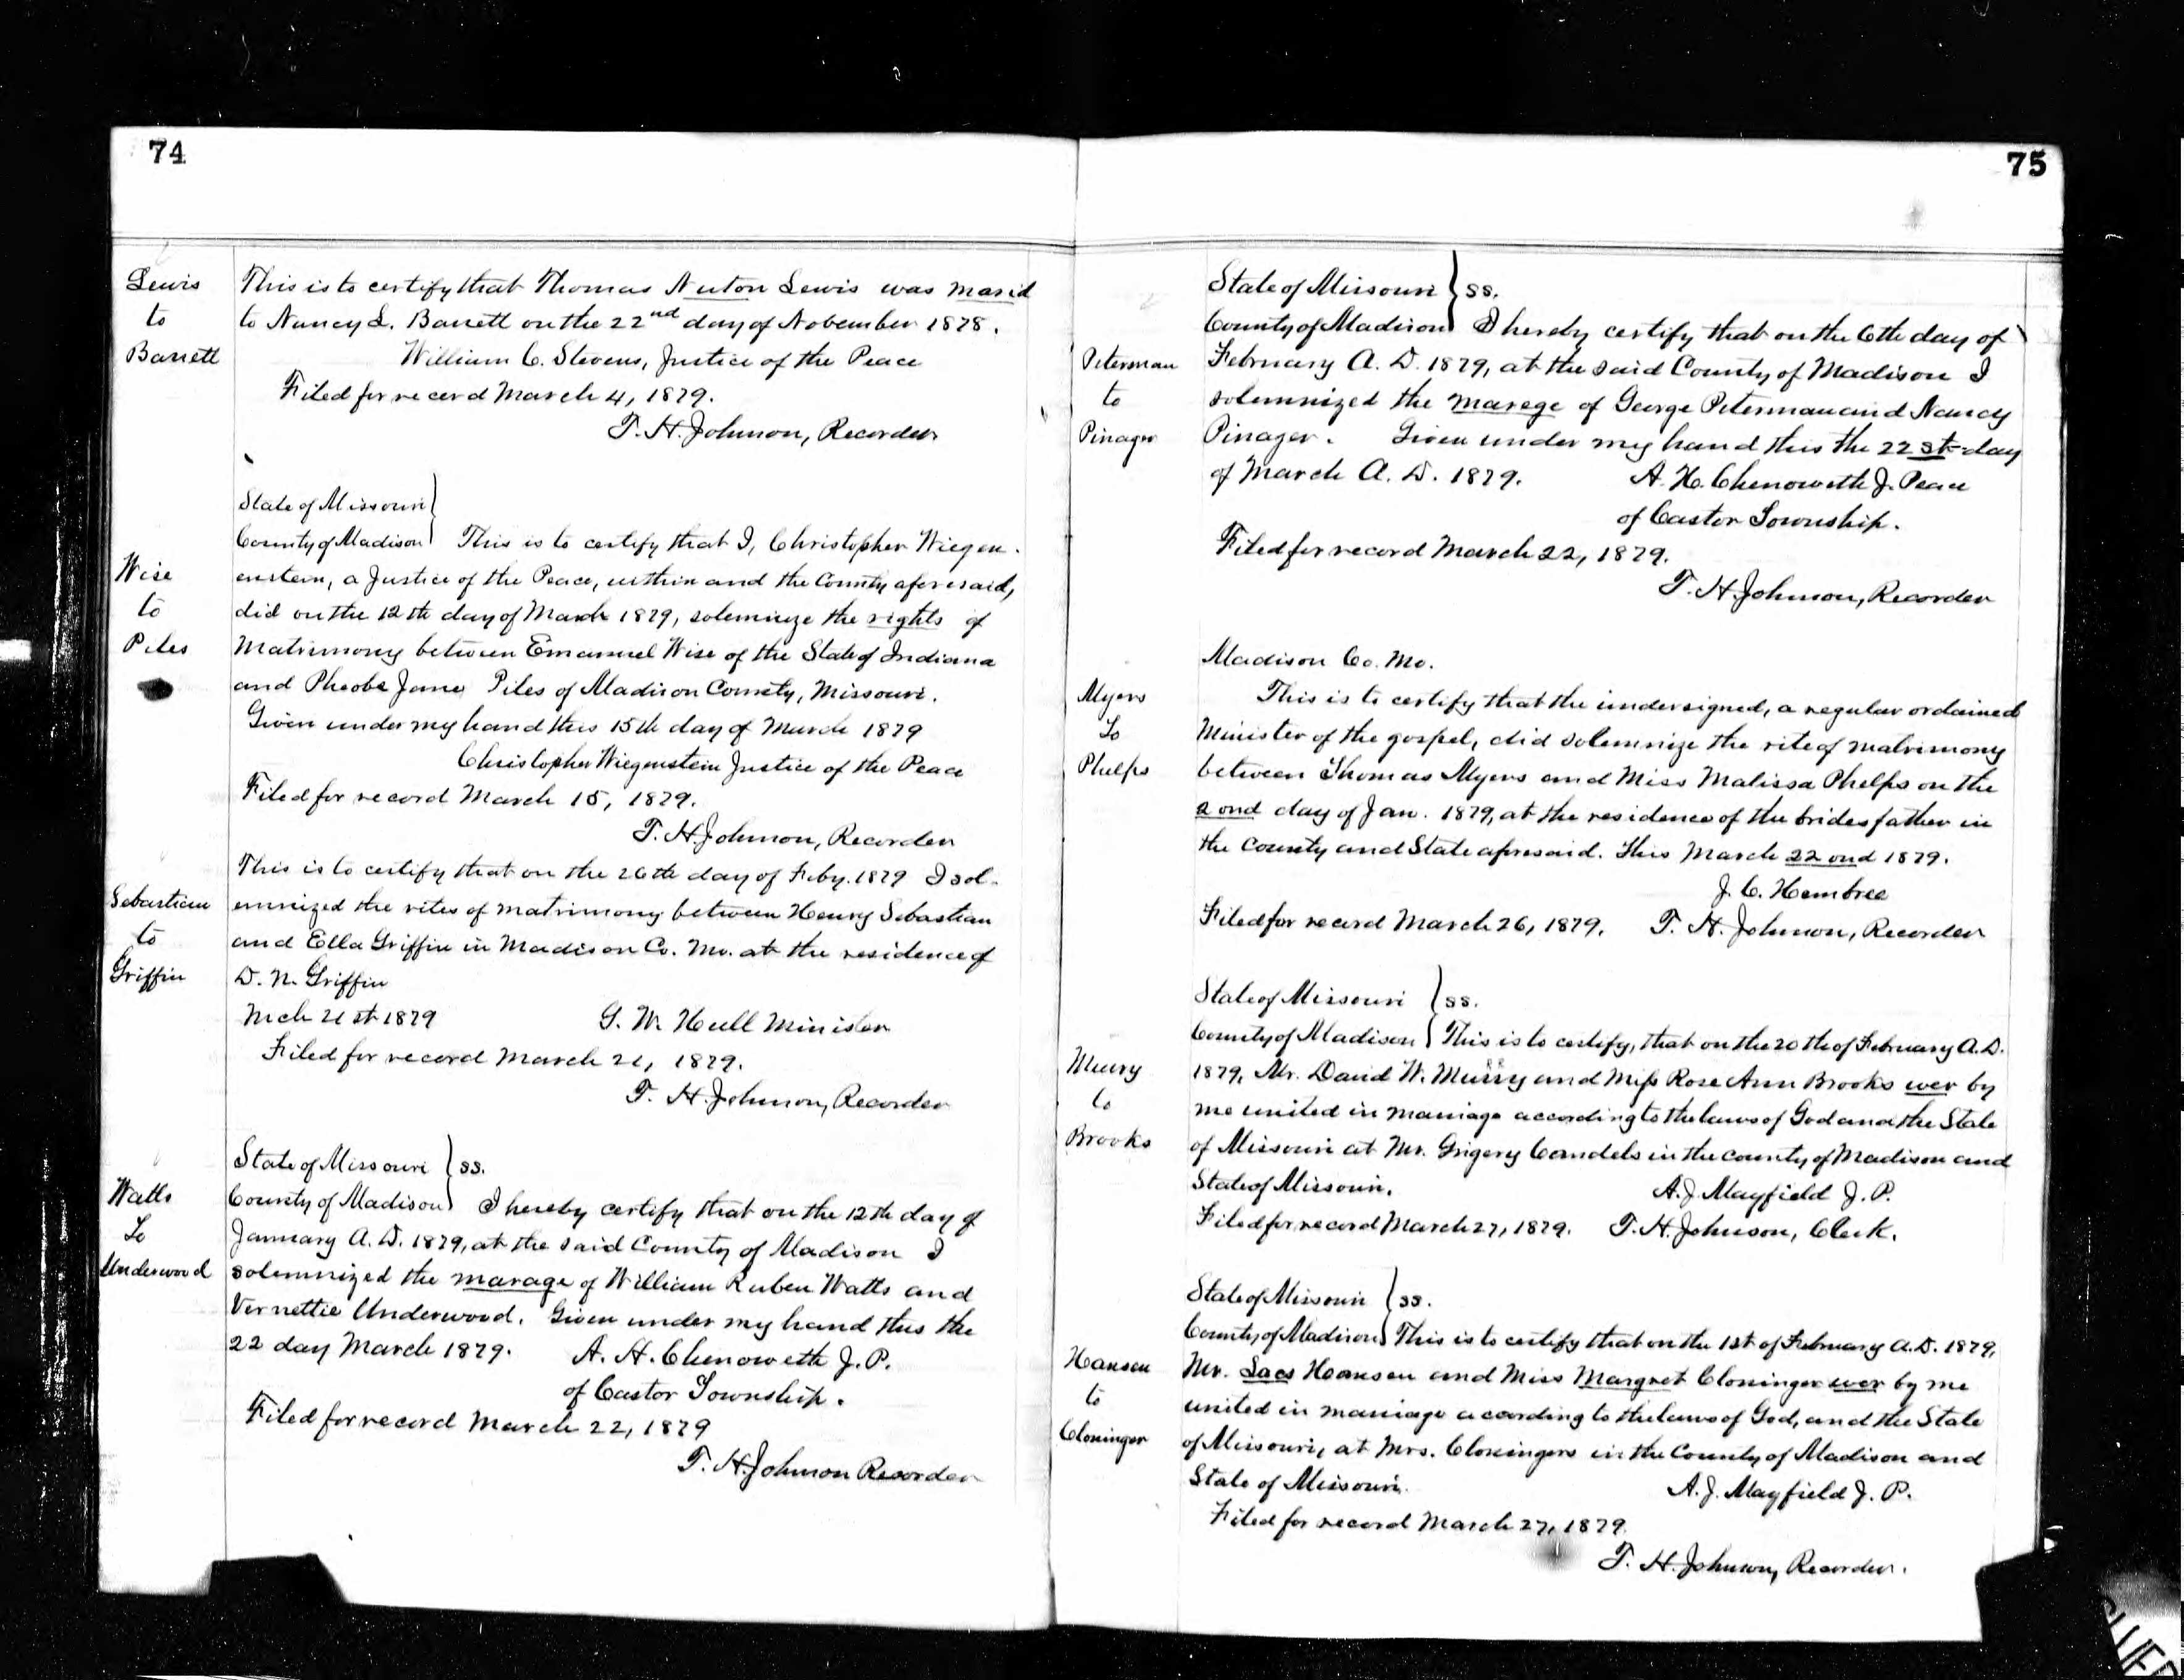 74
Lewis
to
Barrett
This is to certify that Thomas Nuton Lewis was marid
to Nancy L. Barrett on the 22nd day of November 1878.
William C. Stevens, Justice of the Peace
Filed for record March 4, 1879.
T. H. Johnson, Recorder
State of Missouri }
County of Madison } This is to certify that I, Christopher Wiegen-
Wise
to
Piles
enstein, a Justice of the Peace, within and the County aforesaid,
did on the 12th day of March 1879, solemnize the rights of
Matrimony between Emanuel Wise of the State of Indiana
and Pheobe Jane Piles of Madison County, Missouri.
Given under my hand this 15th day of March 1879
Christopher Wiegenstein Justice of the Peace
Filed for record March 15, 1879.
T. H. Johnson, Recorder
Sebastian
to
Griffin
This is to certify that on the 26th day of Feby. 1879 I sol-
emnized the rites of matrimony between Henry Sebastian
and Ella Griffin in Madison Co. Mo. at the residence of
D. N. Griffin
Mch 21st 1879 G. W. Hull Minister
Filed for record March 21, 1879.
T. H. Johnson, Recorder
State of Missouri } ss.
Watts
To
Underwood
County of Madison } I hereby certify that on the 12th day of
January A. D. 1879, at the said County of Madison I
solemnized the marage of William Ruben Watts and
Vernettie Underwood. Given under my hand this the
22 day March 1879. A. H. Chenoweth J. P.
of Castor Township.
Filed for record March 22, 1879
T. H. Johnson Recorder
75
State of Missouri } ss.
County of Madison } I hereby certify that on the 6th day of
Peterman
to
Pinager
February A. D. 1879, at the said County of Madison I
solemnized the marege of George Peterman and Nancy
Pinager. Given under my hand this the 22 st day
of March A. D. 1879. A. H. Chenoweth J. Peace
of Castor Township.
Filed for record March 22, 1879.
T. H. Johnson, Recorder
Madison Co. Mo.
Myers
To
Phelps
This is to certify that the undersigned, a regular ordained
Minister of the gospel, did solemnize the rite of matrimony
between Thomas Myers and Miss Malissa Phelps on the
2 ond day of Jan. 1879, at the residence of the brides father in
the County and State aforesaid. This March 22 ond 1879.
J. C. Hembree
Filed for record March 26, 1879. T. H. Johnson, Recorder
State of Missouri } ss.
County of Madison } This is to certify, that on the 20th of February A. D.
Murry
to
Brooks
1879, Mr. David W. Murry and Miss Rose Ann Brooks wer by
me united in marriage according to the laws of God and the State
of Missouri at Mr. Grigery Candels in the county of Madison and
State of Missouri. A. J. Mayfield J. P.
Filed for record March 27, 1879. T. H. Johnson, Clerk.
State of Missouri } ss.
County of Madison } This is to certify that on the 1st of February A. D. 1879,
Hansen
to
Cloninger
Mr. Lacs Hansen and Miss Margret Cloninger wer by me
united in marriage according to the laws of God, and the State
of Missouri, at Mrs. Cloningers in the County of Madison and
State of Missouri. A. J. Mayfield J. P.
Filed for record March 27, 1879.
T. H. Johnson, Recorder.